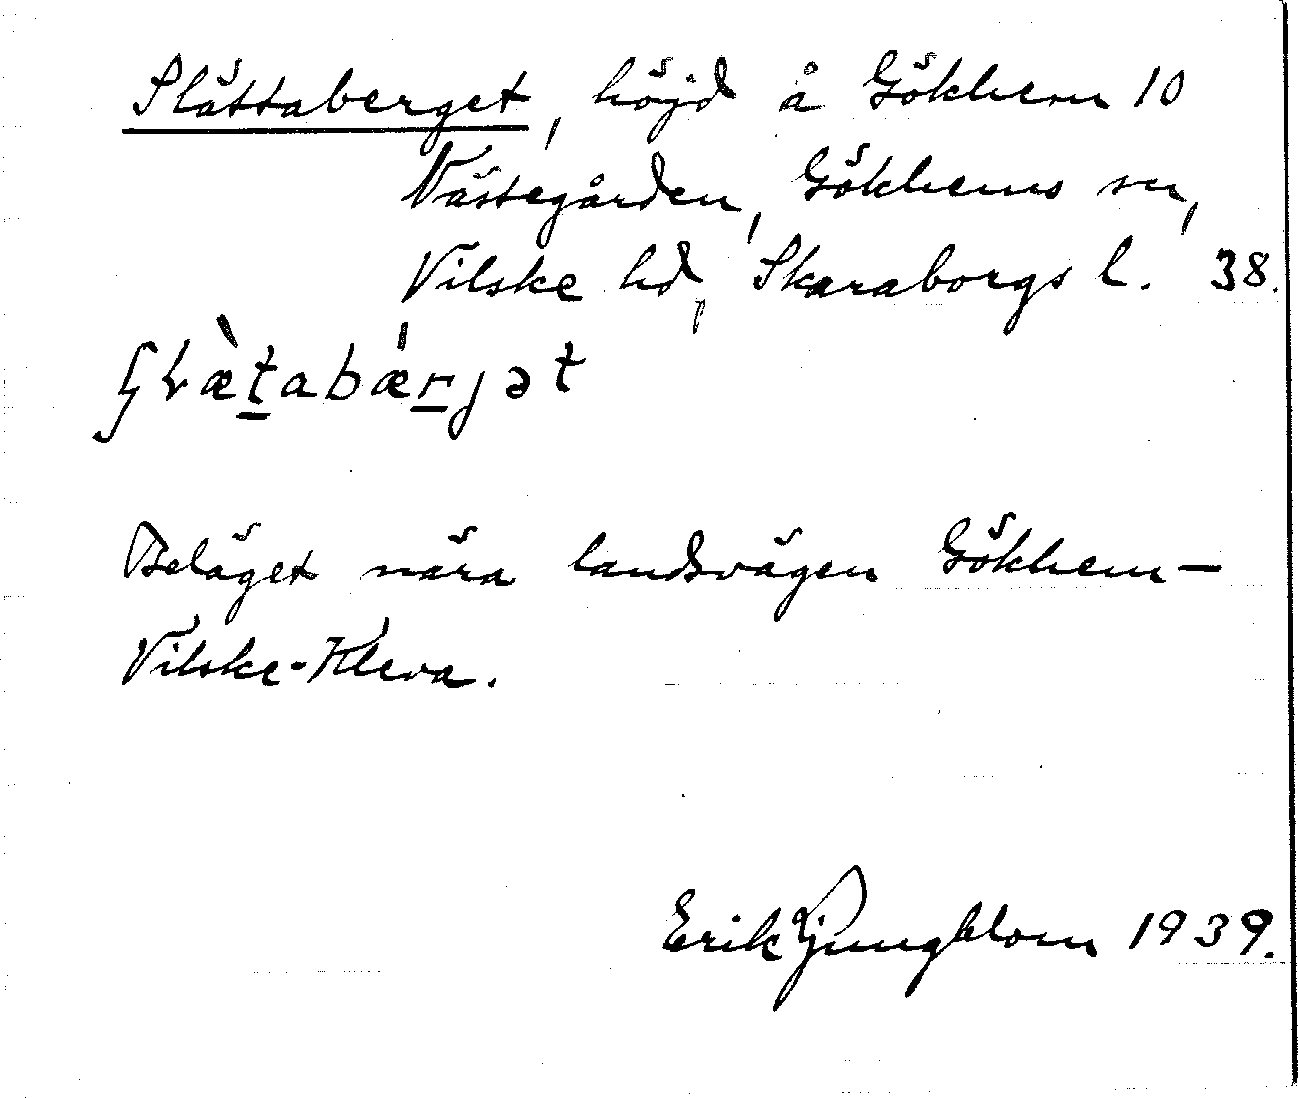 Slättaberget, höjd å Gökhem 10
Västegården, Gökhems sn,
Vilske hd, Skaraborgs l. 38.
ʃlæ̀t̲abær̲jət
Beläget nära landsvägen Gökhem—
Vilske-Kleva.
Erik Ljungblom 1939.